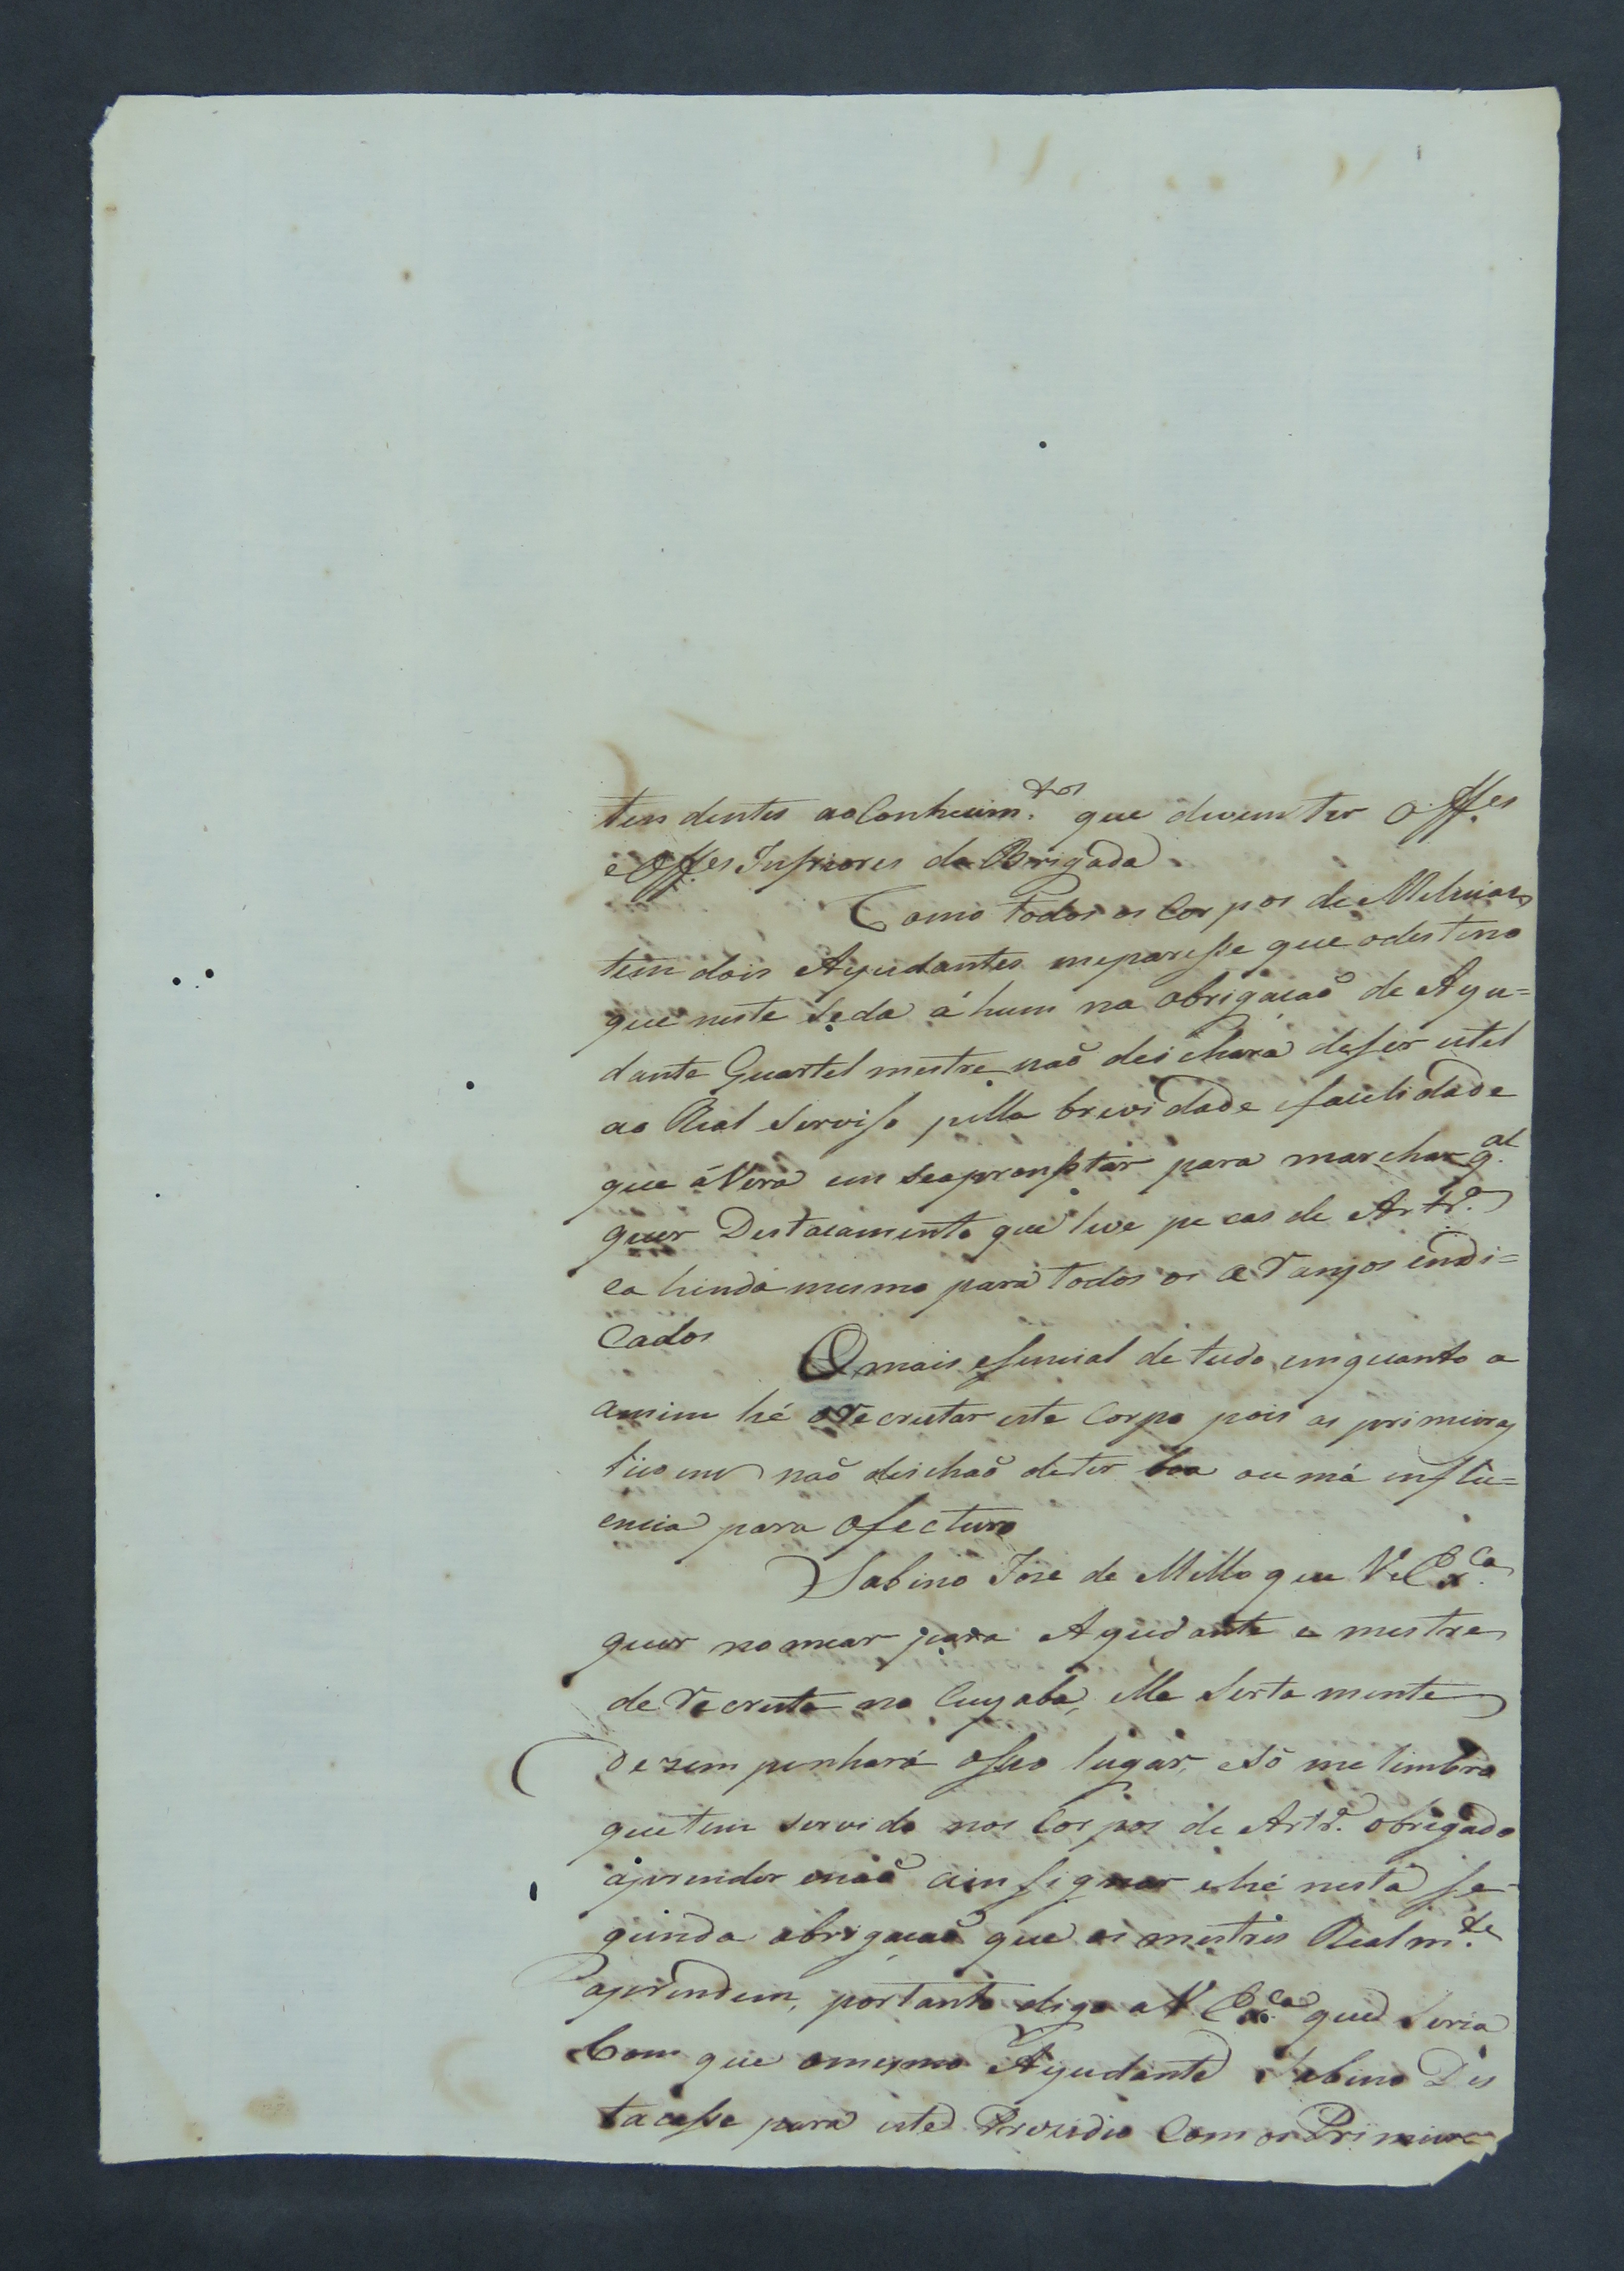 tendentes ao Conhecim.tos que devem ter Off.es
e Off.es Inferiores da Brigada.
Como todos os Corpos de Melicias
tem dois Ayudantes meparesse que odestino
que neste seda á hum na obrigacaõ de Ayu=
dante Quartel mestre naõ deichara deser util
ao Real Serviso pella brevidade efacilidade
que áVera em seapromptar para marchar q.al
quer Destacamento que leve pecas de Artr.a
ca hinda mesmo para todos os arangos endi=
Cados
O mais esencial de tudo emquanto a
assim hé orecrutar este Corpo pois as primeiras
licoens naõ deichaõ deter boa ou má influ=
encia para ofecturo
Sabino Jose de Mello que V. Ex.ca
quer nomear para Ayudante e mestre
de recruta no Cuyaba, elle Serta mente
dezempenhará oseo lugar, esó me limbra
quetem servido nos Corpos de Artr.a obrigado
aprender enaõ ainsignar ehé nesta se=
gunda obrigacaõ que os mestres Realm.te
aprendem, portanto digo a V. Ex.ca que Seria
bom que omesmo Ayudante Sabino Des
tacasse para este Prezidio Com os Primeiro